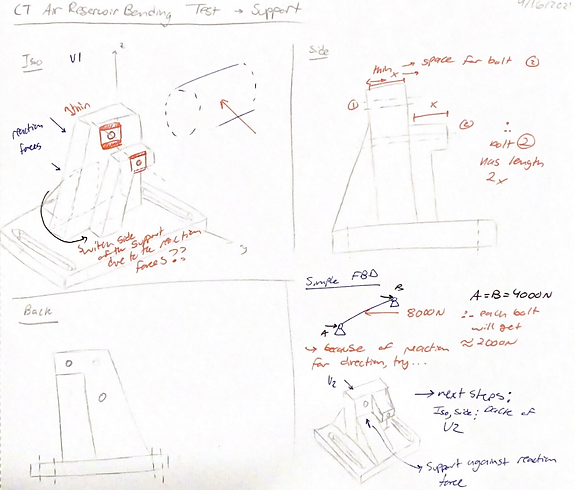 CT Air Reservoir Bonding Test → Support
Iso
V1
z
1 min
reaction
forces
y
Switch side
of the support
due to the reaction
forces??
Side
min
x → space for bolt ②
①
x
②
∴
bolt ②
has length
2x
Back
Simple FBD
B
A
8000N
A=B=4000N
∴ each bolt
will get
≈ 2000N
→ because of reaction
for direction, try...
V2
→ next steps:
Iso, side, back of
V2
→ Support against reaction
force